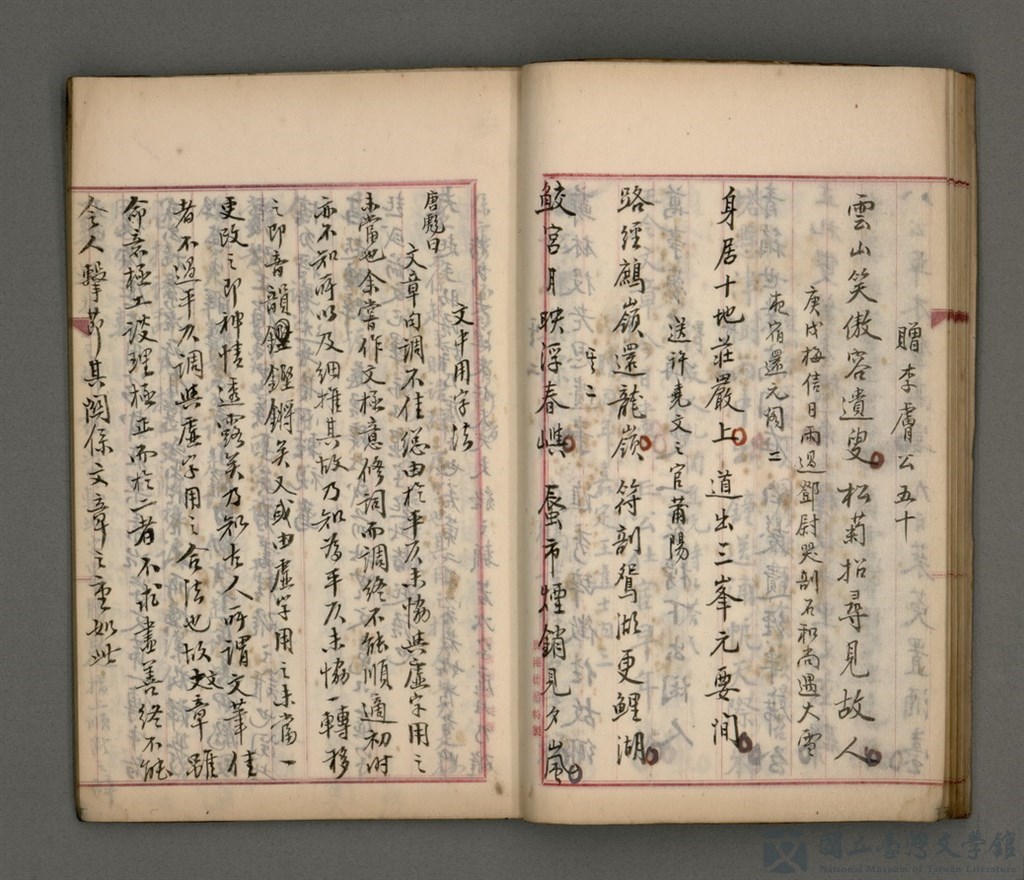 贈李膚公五十
雲山笑傲容遺叟 松菊招尋見故人
庚戌梅信日雨過鄧尉哭剖石和尚遇大雪
夜宿還元閣 二
身居十地莊嚴上 道出三峯元要間
送許堯文之官莆陽
路經鷓嶺還龍嶺 符剖鴛湖更鯉湖
其二
鮫宮月映浮春嶼 蜃市煙銷見夕嵐
文中用字法
唐彪曰
文章句調不佳總由於平仄未恊與虛字用之
未當也余嘗作文極意修詞而調終不能順適初時
亦不知所以及細推其故乃知為平仄未恊一轉移
之即音韻鏗鏘矣又或由虛字用之未當一
更改之即神情透露矣乃知古人所謂文筆佳
者不過平仄調與虛字用之合法也故文章雖
命意極工談理極正而於二者不求盡善終不能
令人擊節其關係文章之重如此
國立臺灣文學館
National Museum of Taiwan Literature